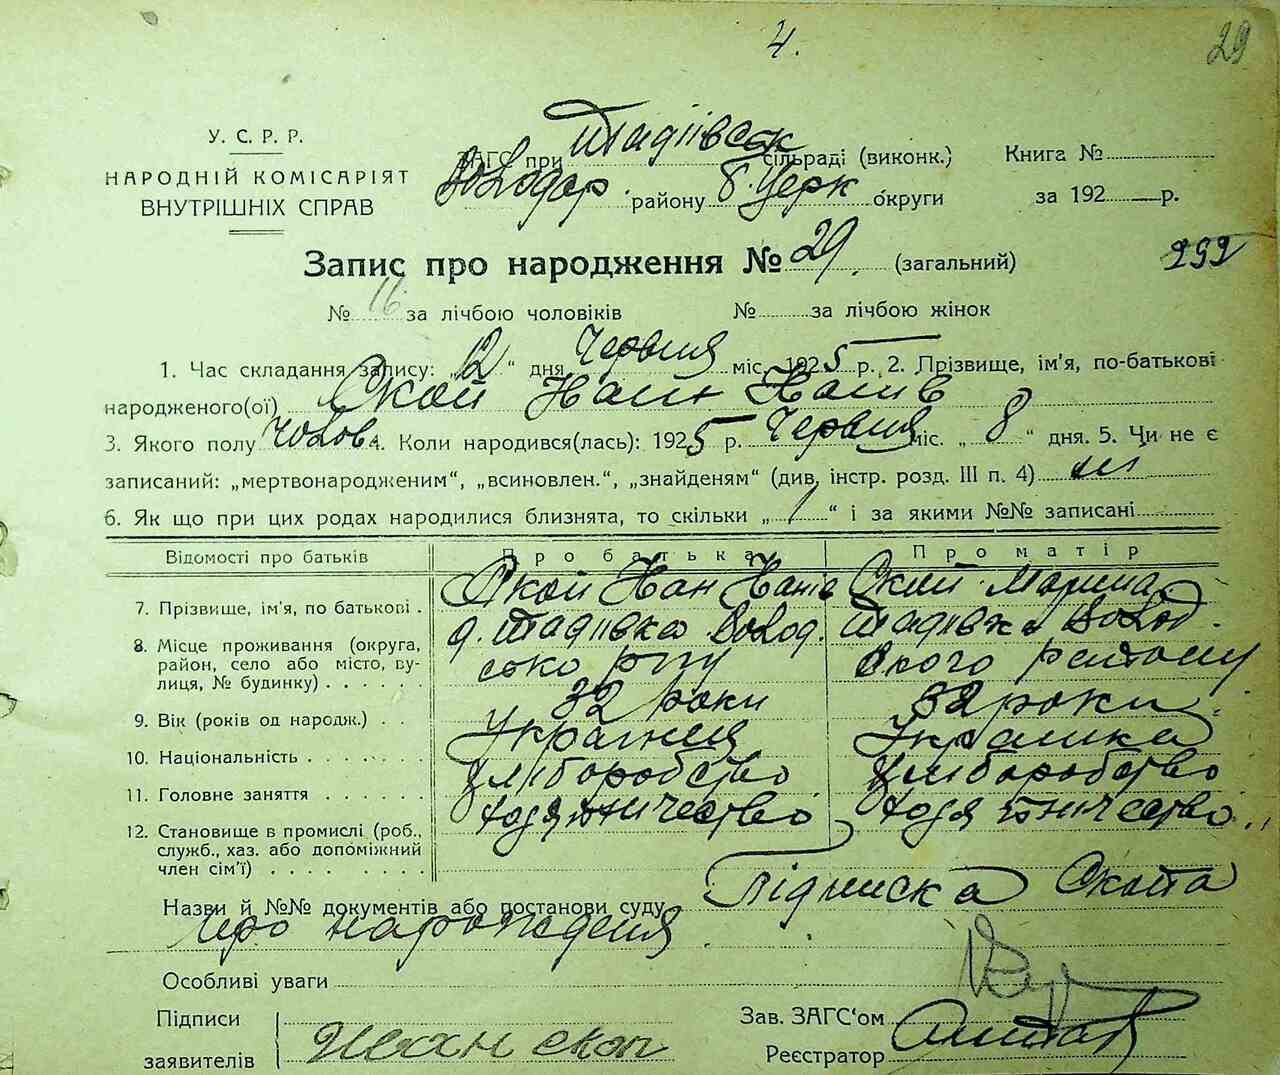 4.
29
У. С. Р. Р.
НАРОДНІЙ КОМІСАРІЯТ
ВНУТРІШНІХ СПРАВ
ЗАГС при Тадіївськ сільраді (виконк.)
Книга №
Володар. району Б. Церк округи
за 192 р.
Запис про народження № 29. (загальний)
292
№ 16 за лічбою чоловіків № за лічбою жінок
1. Час складання запису: „12“ дня Червня міс. 1925 р. 2. Прізвище, ім'я, по-батькові
народженого(ої) Ской Іван Іванів
3. Якого полу Чолов. 4. Коли народився(лась): 1925 р. Червня міс. „8“ дня. 5. Чи не є
записаний: „мертвонародженим“, „всиновлен.“, „знайденям“ (див. інстр. розд. III п. 4) ні
6. Як що при цих родах народилися близнята, то скільки „1“ і за якими №№ записані
Відомості про батьків Про батька Про матір
7. Прізвище, ім'я, по батькові . Ской Іван Іванів Ской Марина
8. Місце проживання (округа, район, село або місто, вулиця, № будинку) . . . . . с. Тадіївка Волод. Тадіївка Волод.
ского р-ну ского району
9. Вік (років од народж.) . . 32 роки 32 роки
10. Національність . . . . . . Українця Українка
11. Головне заняття . . . . . . хліборобство хліборобство
12. Становище в промислі (роб., служб., хаз. або допоміжний член сім'ї) . . . .
Назви й №№ документів або постанови суду Підписка Скоя
про народження
Особливі уваги
Підписи
заявителів
Зав. ЗАГС'ом
Реєстратор